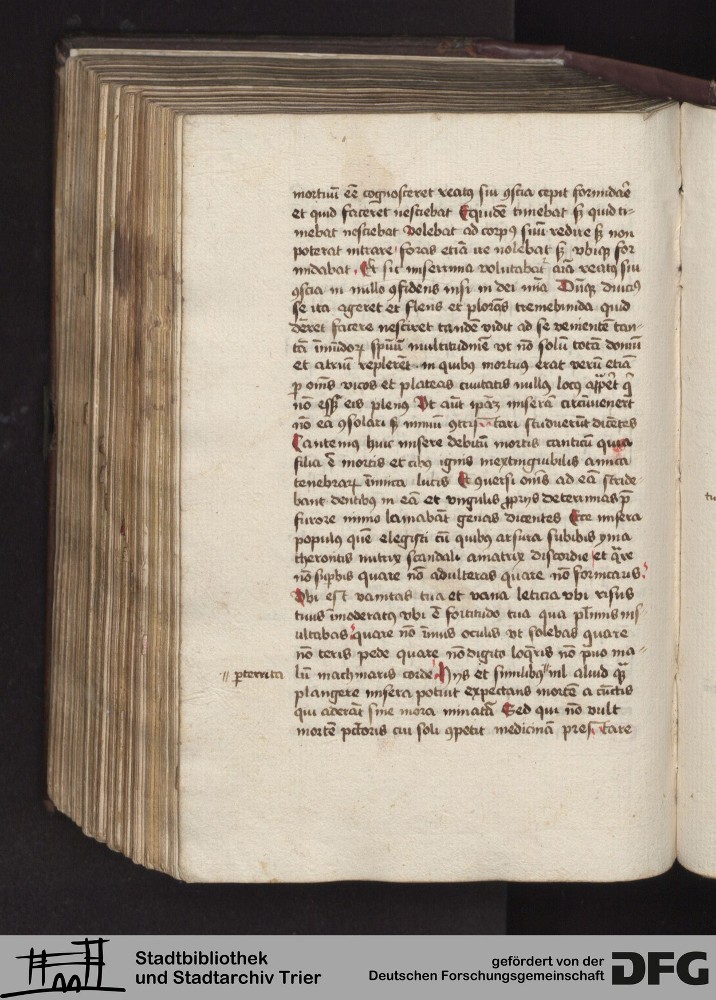 mortuū eē cognosceret reatꝯ sui ꝯscia cepit formidar̄e
et quid faceret nesciebat Equidē timebat sꝫ quid ti-
mebat nesciebat volebat ad corpꝯ suū redire sꝫ non
poterat intrare foras etiā ire nolebat sꝫ vbiqꝫ for
midabat Et sic miserrima volutabat᷑ aīa reatꝯ sui
ꝯscia in nullo ꝯfidens nisi in dei mīa Dūqꝫ diuciꝯ
se ita ageret et flens et plorās tremebunda quid
deret facere nesciret tandē vidit ad se venientē tan-
tā īmūdoꝝ spūū multitudinē vt nō solū totā domū
et atriū replerēt in quibꝯ mortuꝯ erat verū etiā
ꝑ omīs vicos et plateas ciuitatis nullꝯ locꝯ appēt q̄
nō eēt eis plenꝯ Vt aūt ip̄aꝫ miserā circūuenert̄
nō eā ꝯsolari sꝫ nimiū ꝯtristari studuerūt dicētes
Cantemus huic misere debitū mortis canticū quia
filia ē mortis et cibꝯ ignis inextinguibilis amica
tenebraꝝ īimica lucis Et ꝯuersi omīs ad eā stride
bant dentibꝯ in eā et vngulis ꝓprijs deterrimas p̄
furore nimio laniabāt genas dicentes Ecce misera
populꝯ quē elegisti cū quibꝯ arsura subibis yma
cherontis nutrix scandali amatrix discordie et q̄re
nō suꝑbis quare nō adulteras quare nō fornicaris
Vbi est vanitas tua et vana leticia vbi risus
tuus īmoderatꝯ vbi ē fortitudo tua qua pl̄imis ins-
ultabas quare nō īnuis oculis vt solebas quare
nō teris pede quare nō digito loq̄ris nō prauo ma-
lū machinaris corde Hijs et similibꝯ // nil aliud q̄
plangere misera potuit expectans mortē a cūctis
qui aderāt sine mora minatā Sed qui nō vult
mortē pctōris cui soli ꝯpetit medicinā prestare
// ꝑterrita
Stadtbibliothek
und Stadtarchiv Trier
gefördert von der
Deutschen Forschungsgemeinschaft
DFG